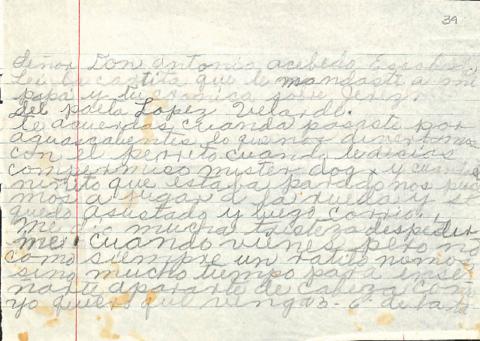 39
Señor Don antonio acebedo Escobedo
Lei la cartita que le mandaste a mi
papá y tu cronica sobre Jerez
del poeta Lopez Velarde.
te acuerdas cuando pasaste por
aguascalientes lo que nos divertimos
con el perrito cuando le decias
compermiso mister dog y cuando
niñito que estaba parado nos pusi
mos a jugar a la rueda y se
quedo asustado y luego corrio.
me dio mucha tristeza despedir
me! cuando vienes pero no
como siempre un ratito nomas
sino mucho tiempo para ense
ñarte a pararte de cabeza como
yo quiero que vengas 3-6 de la ta